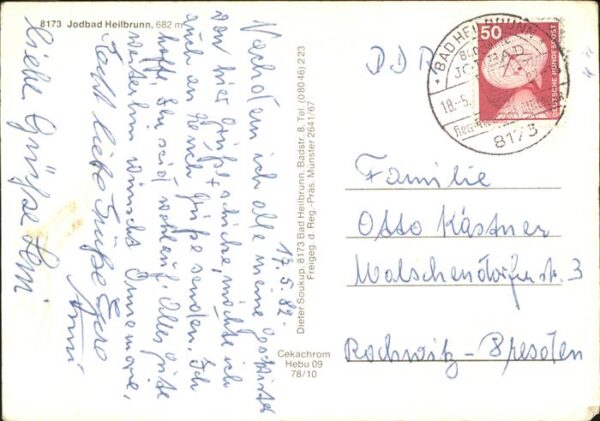 8173 Jodbad Heilbrunn, 682 m
17.5.82.
Nachdem ich alle meine
von hier Grüße schicke, möchte ich
auch an Euch Grüße senden. Ich
hoffe Ihr seid wohlauf. Alles Gute
weiterhin wünscht Annemarie.
Auch liebe Grüße Eure
Anni
Liebe Grüße Heni
Dieter Soukup, 8173 Bad Heilbrunn, Badstr. 8, Tel. (08046) 223
Freigeg. d. Reg.-Präs. Münster 2641/67
Cekachrom
Hebu 09
78/10
DDR
50
DEUTSCHE BUNDESPOST
BAD HEILBRUNN
18.-5.
8173
Familie
Otto Kästner
Malschendorfer str. 3
Rochwitz-Dresden